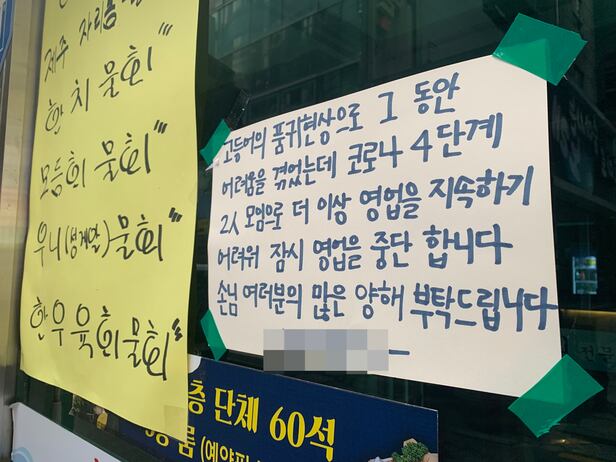 제주 자리물
한치 물회"
모듬회 물회"
우니(성게알)물회"
한우육회물회"
고등어의 품귀현상으로 그 동안
어려움을 겪었는데 코로나 4단계
2人 모임으로 더 이상 영업을 지속하기
어려워 잠시 영업을 중단 합니다
손님 여러분의 많은 양해 부탁드립니다
층 단체 60석